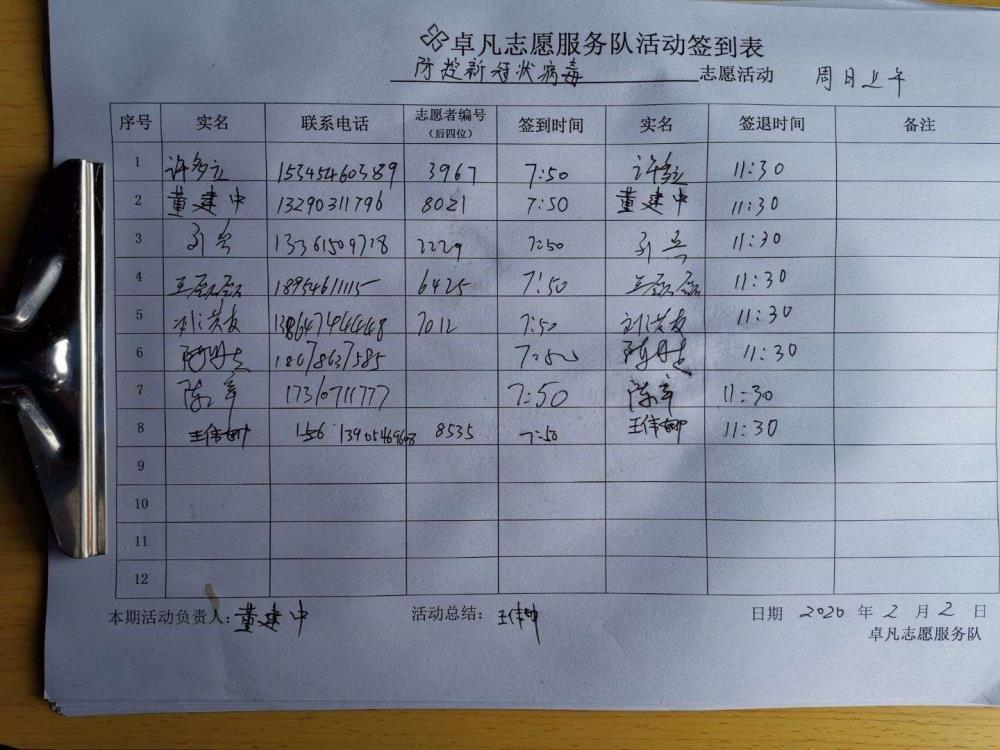 卓凡志愿服务队活动签到表
防控新冠状病毒 志愿活动 周日上午
序号 实名 联系电话 志愿者编号（后四位） 签到时间 实名 签退时间 备注
1 许多立 15345460389 3967 7:50 许多立 11:30
2 董建中 13290311796 8021 7:50 董建中 11:30
3 13361509718 2229 7:50 11:30
4 18954611115 6425 7:50 11:30
5 刘洪友 7012 7:50 刘洪友 11:30
6 18678637585 7:50 11:30
7 陈军 17310711777 7:50 陈军 11:30
8 王伟 8535 7:50 王伟 11:30
9
10
11
12
本期活动负责人：董建中 活动总结：王伟 日期 2020 年 2 月 2 日
卓凡志愿服务队